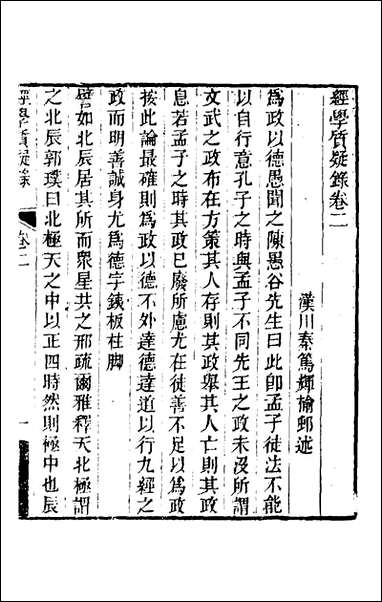 經學質疑錄卷二
漢川秦篤輝榆邨述
爲政以德愚聞之陳愚谷先生曰此卽孟子徒法不能
以自行意孔子之時與孟子不同先王之政未沒所謂
文武之政布在方策其人存則其政舉其人亡則其政
息若孟子之時其政已廢所慮尤在徒善不足以爲政
按此論最確則爲政以德不外達德達道以行九經之
政而明善誠身尤爲德字鐵板柱脚
譬如北辰居其所而衆星共之邢疏爾雅釋天北極謂
之北辰郭璞曰北極天之中以正四時然則極中也辰
經學質疑錄
卷二
一